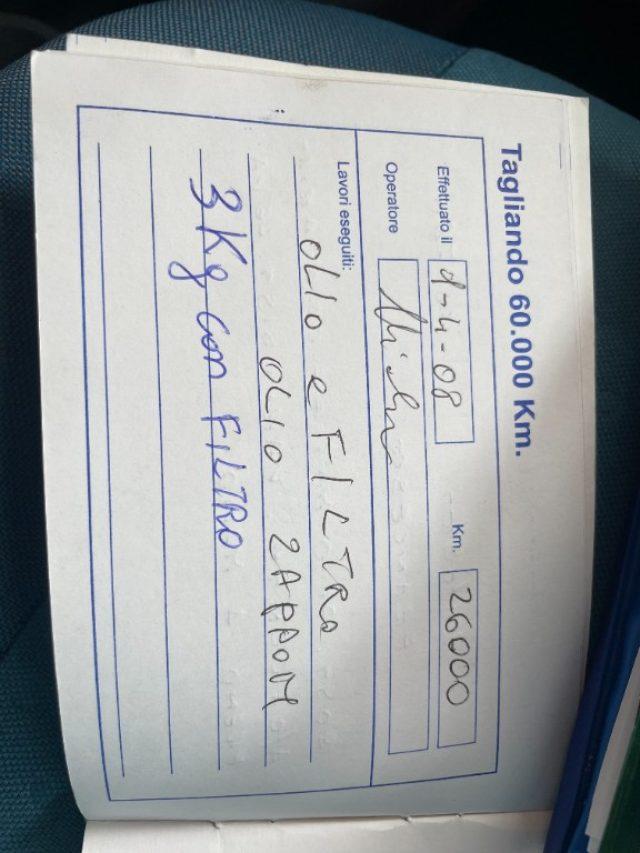 Tagliando 60.000 Km.
Effettuato il Km. 26000
Operatore
Lavori eseguiti:
OLIO e FILTRO
OLIO
3 Kg con FILTRO